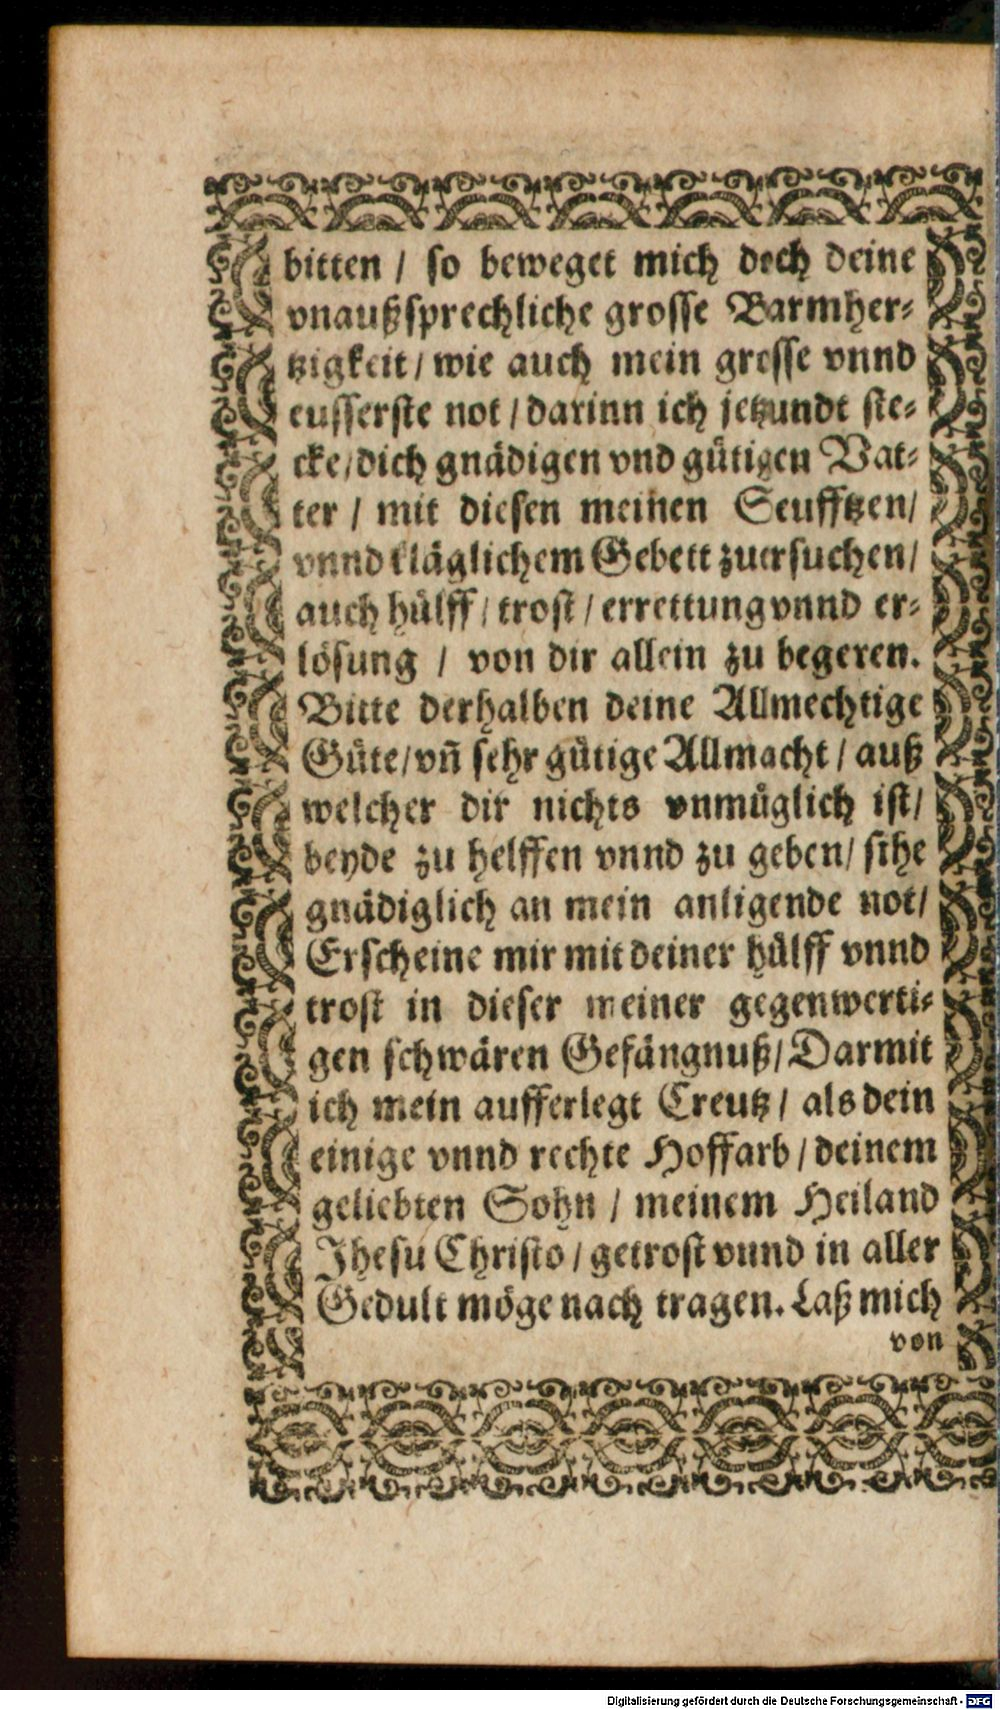 bitten / so beweget mich doch deine
vnaußsprechliche grosse Barmher-
tzigkeit / wie auch mein grosse vnnd
eusserste not / darinn ich jetzundt ste-
cke / dich gnädigen vnd gütigen Vat-
ter / mit diesen meinen Seufftzen /
vnnd kläglichem Gebett zuersuchen /
auch hülff / trost / errettung vnnd er-
lösung / von dir allein zu begeren.
Bitte derhalben deine Allmechtige
Güte / vñ sehr gütige Allmacht / auß
welcher dir nichts vnmüglich ist /
beyde zu helffen vnnd zu geben / sihe
gnädiglich an mein anligende not /
Erscheine mir mit deiner hülff vnnd
trost in dieser meiner gegenwerti-
gen schwären Gefängnuß / Darmit
ich mein aufferlegt Creutz / als dein
einige vnnd rechte Hoffarb / deinem
geliebten Sohn / meinem Heiland
Jhesu Christo / getrost vnnd in aller
Gedult möge nach tragen. Laß mich
von
Digitalisierung gefördert durch die Deutsche Forschungsgemeinschaft - DFG